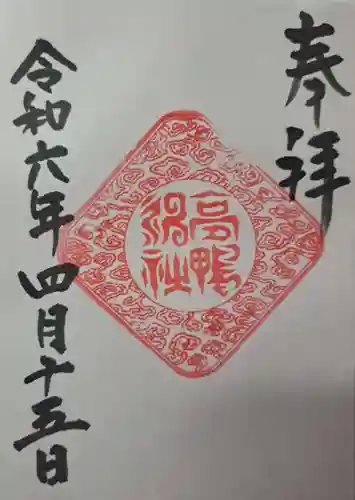 奉拝
高鴨
神社
令和六年四月十五日